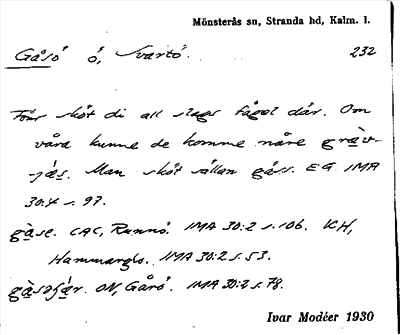 Mönsterås sn, Stranda hd, Kalm. l.
Gåsö ö, Svartö. 232
Förr sköt di all slags fågel där. Om
våra kunne de komme nåre gräv-
-jäs. Man sköt sällan gäss. EG. IMA
30:4 s. 97.
gàse. CAC, Runnö. IMA 30:2 s. 106. KH,
Hammarglo. IMA 30:2 s. 53.
ON, Gårö. IMA 30:2 s. 78.
Ivar Modéer 1930